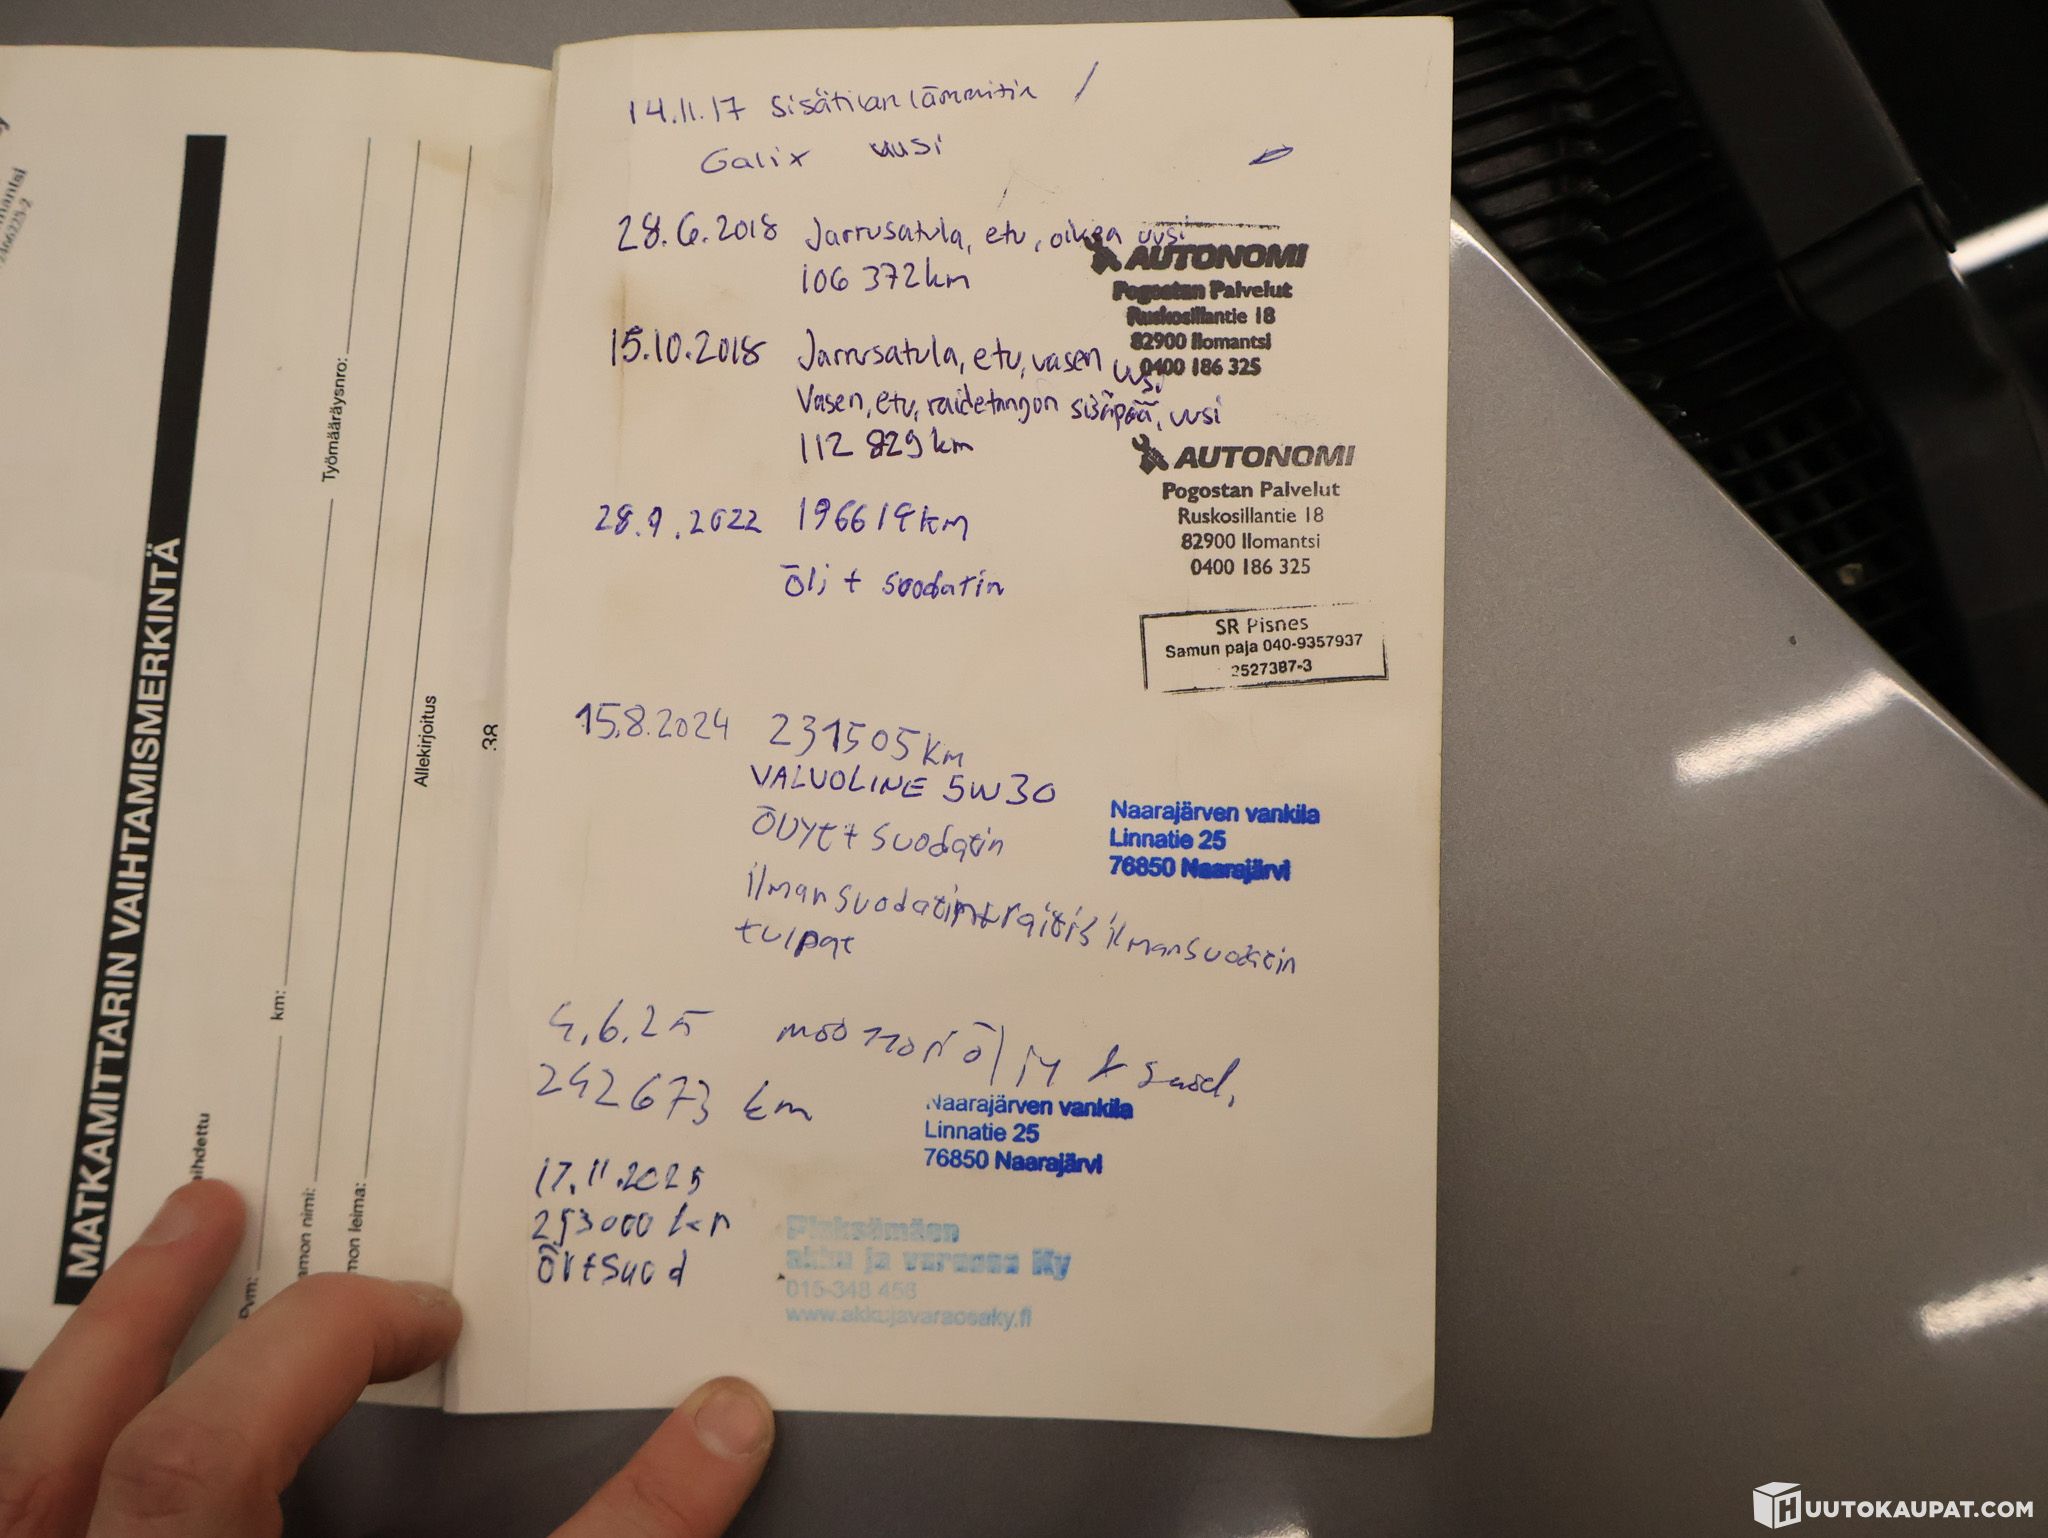 mantsi
2466225-2
MATKAMITTARIN VAIHTAMISMERKINTÄ
aihdettu
Pvm: km: Työmääräysnro:
amon nimi:
mon leima: Allekirjoitus
38
14.11.17 Sisätilan lämmitin /
Galix uusi
28.6.2018 Jarrusatula, etu, oikea uusi
106 372km
AUTONOMI
Pogostan Palvelut
Ruskosillantie 18
82900 Ilomantsi
0400 186 325
15.10.2018 Jarrusatula, etu, vasen uusi
Vasen, etu, raidetangon sisäpää, uusi
112 829km
AUTONOMI
Pogostan Palvelut
Ruskosillantie 18
82900 Ilomantsi
0400 186 325
28.9.2022 196619km
Ölj + suodatin
SR Pisnes
Samun paja 040-9357937
2527387-3
15.8.2024 231505km
VALVOLINE 5W30
suodatin
ilmansuodatin+raitisilmansuodatin
tulpat
Naarajärven vankila
Linnatie 25
76850 Naarajärvi
4.6.25 moottoriöljy + suod,
242673 km
Naarajärven vankila
Linnatie 25
76850 Naarajärvi
17.11.2025
253000 km
Öl+suod
Pieksämäen
akku ja varaosa Ky
015-348 458
www.akkujavaraosaky.fi
HUUTOKAUPAT.COM